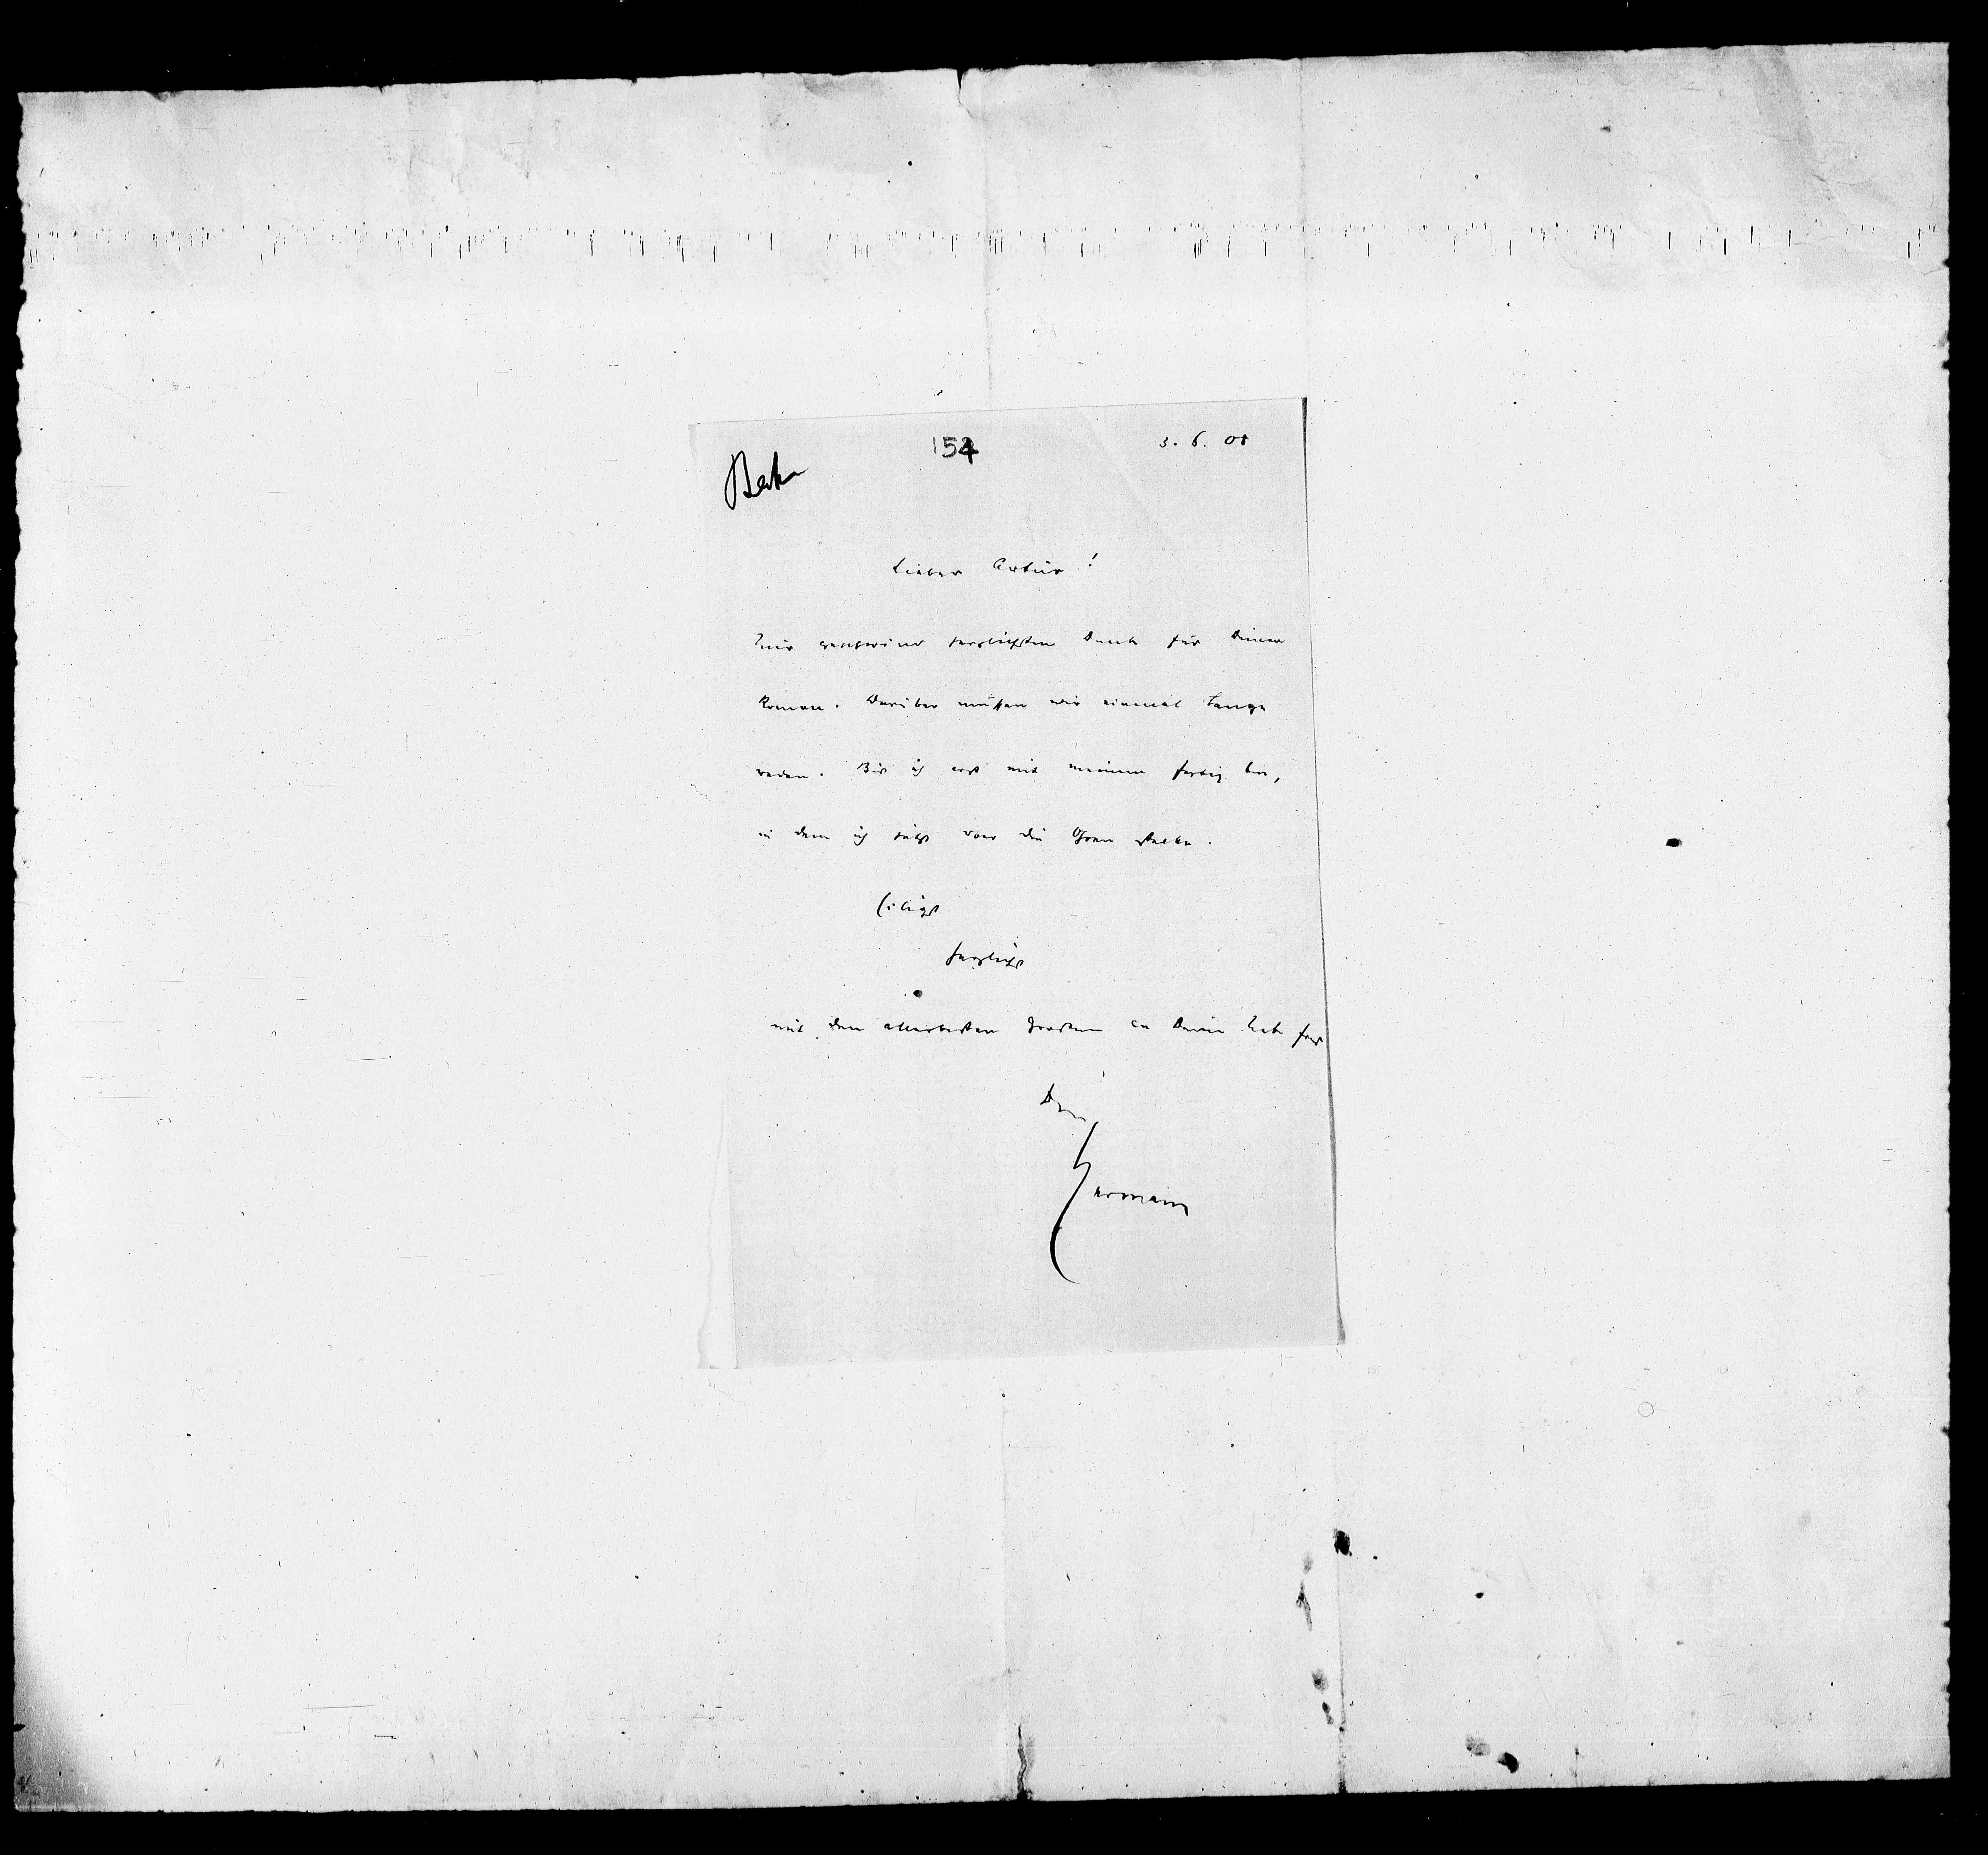 154
3. 6. 08
Bahr
Lieber Artur!
Nur geschwind herzlichsten Dank für Deinen
Roman. Darüber müssen wir einmal lange
reden. Bis ich erst mit meinem fertig bin,
in dem ich bis über die Ohren stecke.
Eiligst
herzlichst
mit den allerbesten Grüssen an Deine liebe Frau
Dein
Hermann